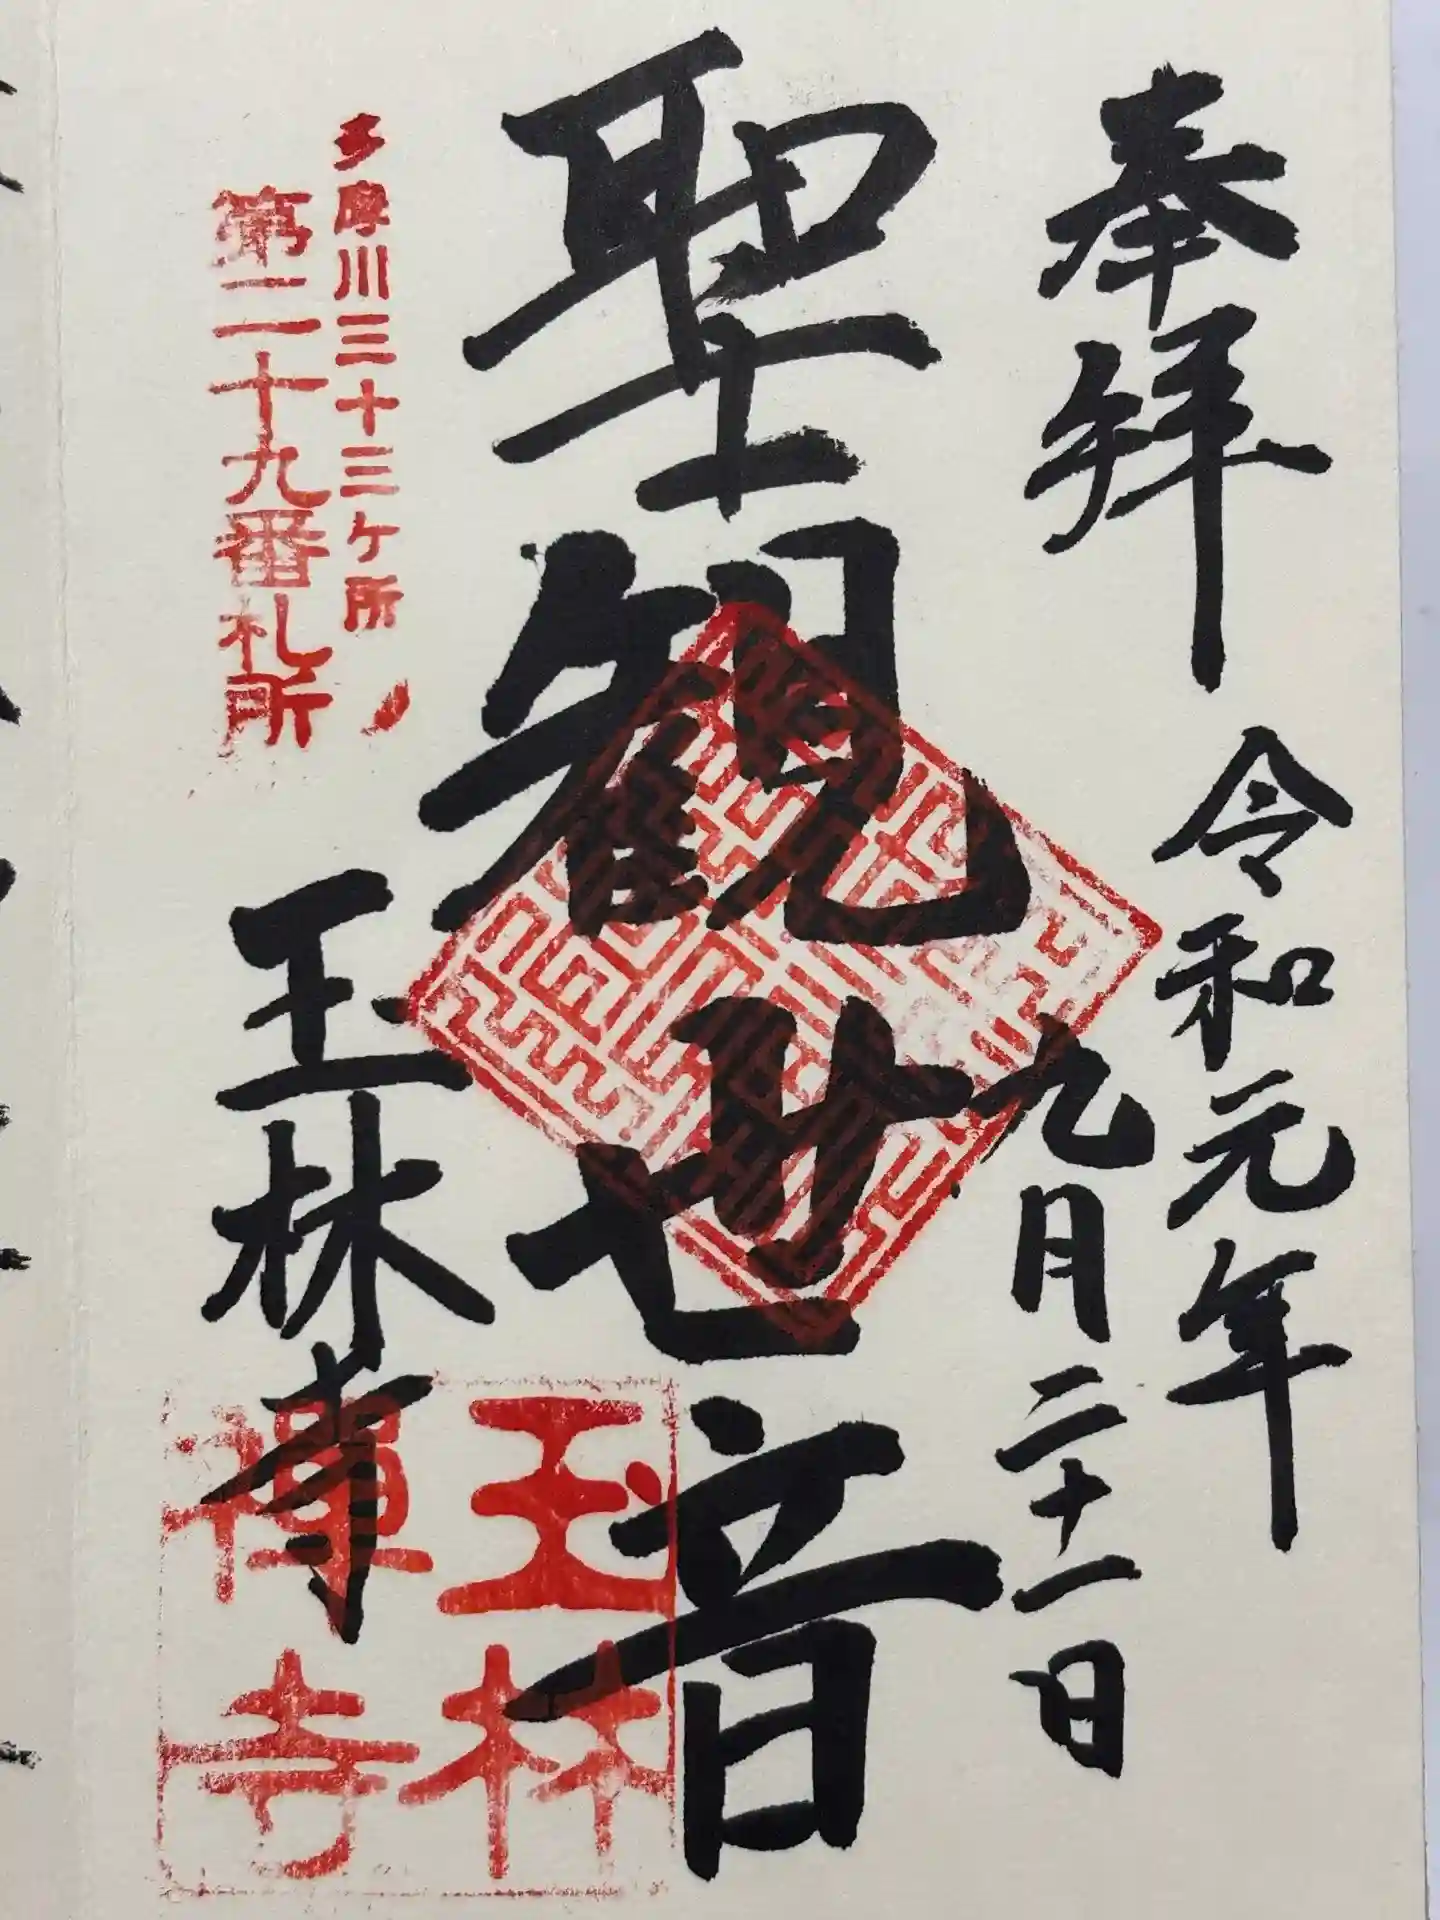 奉拝
令和元年
九月二十一日
聖観世音
多摩川三十三ヶ所
第二十九番札所
玉林寺
玉林
禅寺